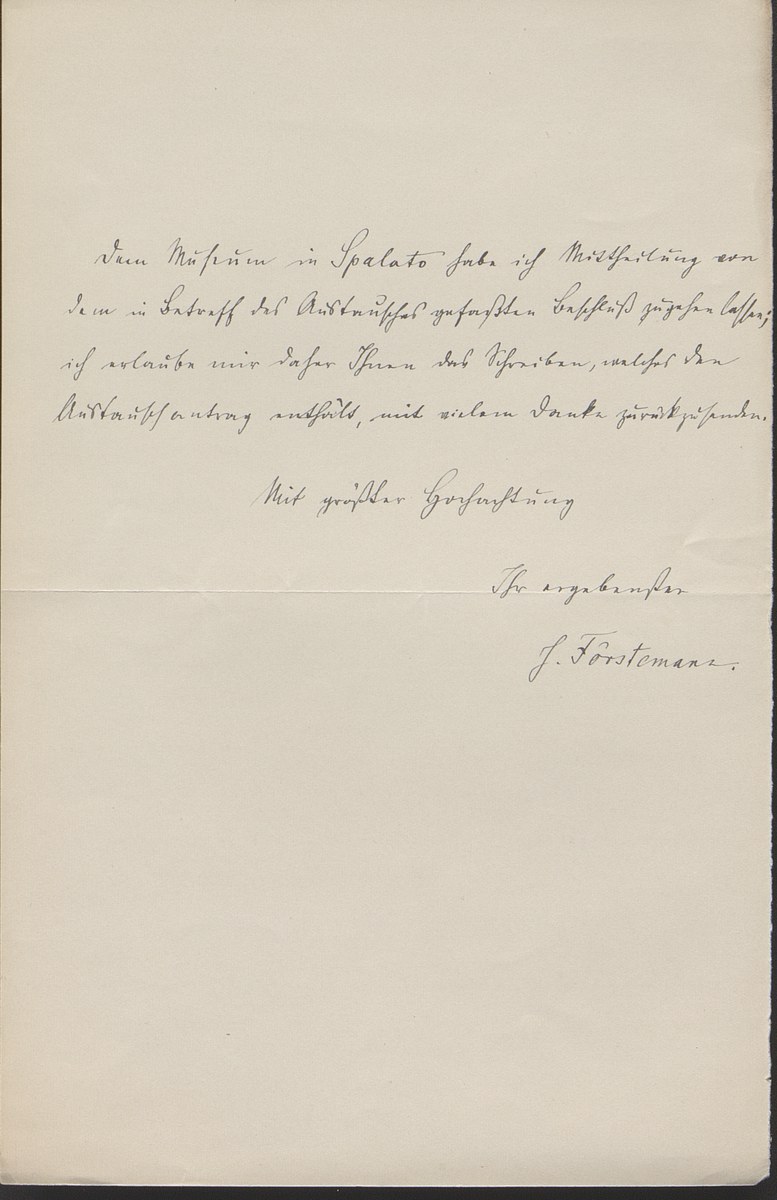 Dem Museum in Spalato habe ich Mittheilung von
dem in Betreff des Austausches gefaßten Beschluß zugehen lassen;
ich erlaube mir daher Ihnen das Schreiben, welches den
Austauschantrag enthält, mit vielem Danke zurückzusenden.
Mit größter Hochachtung
Ihr ergebenster
J. Förstemann.